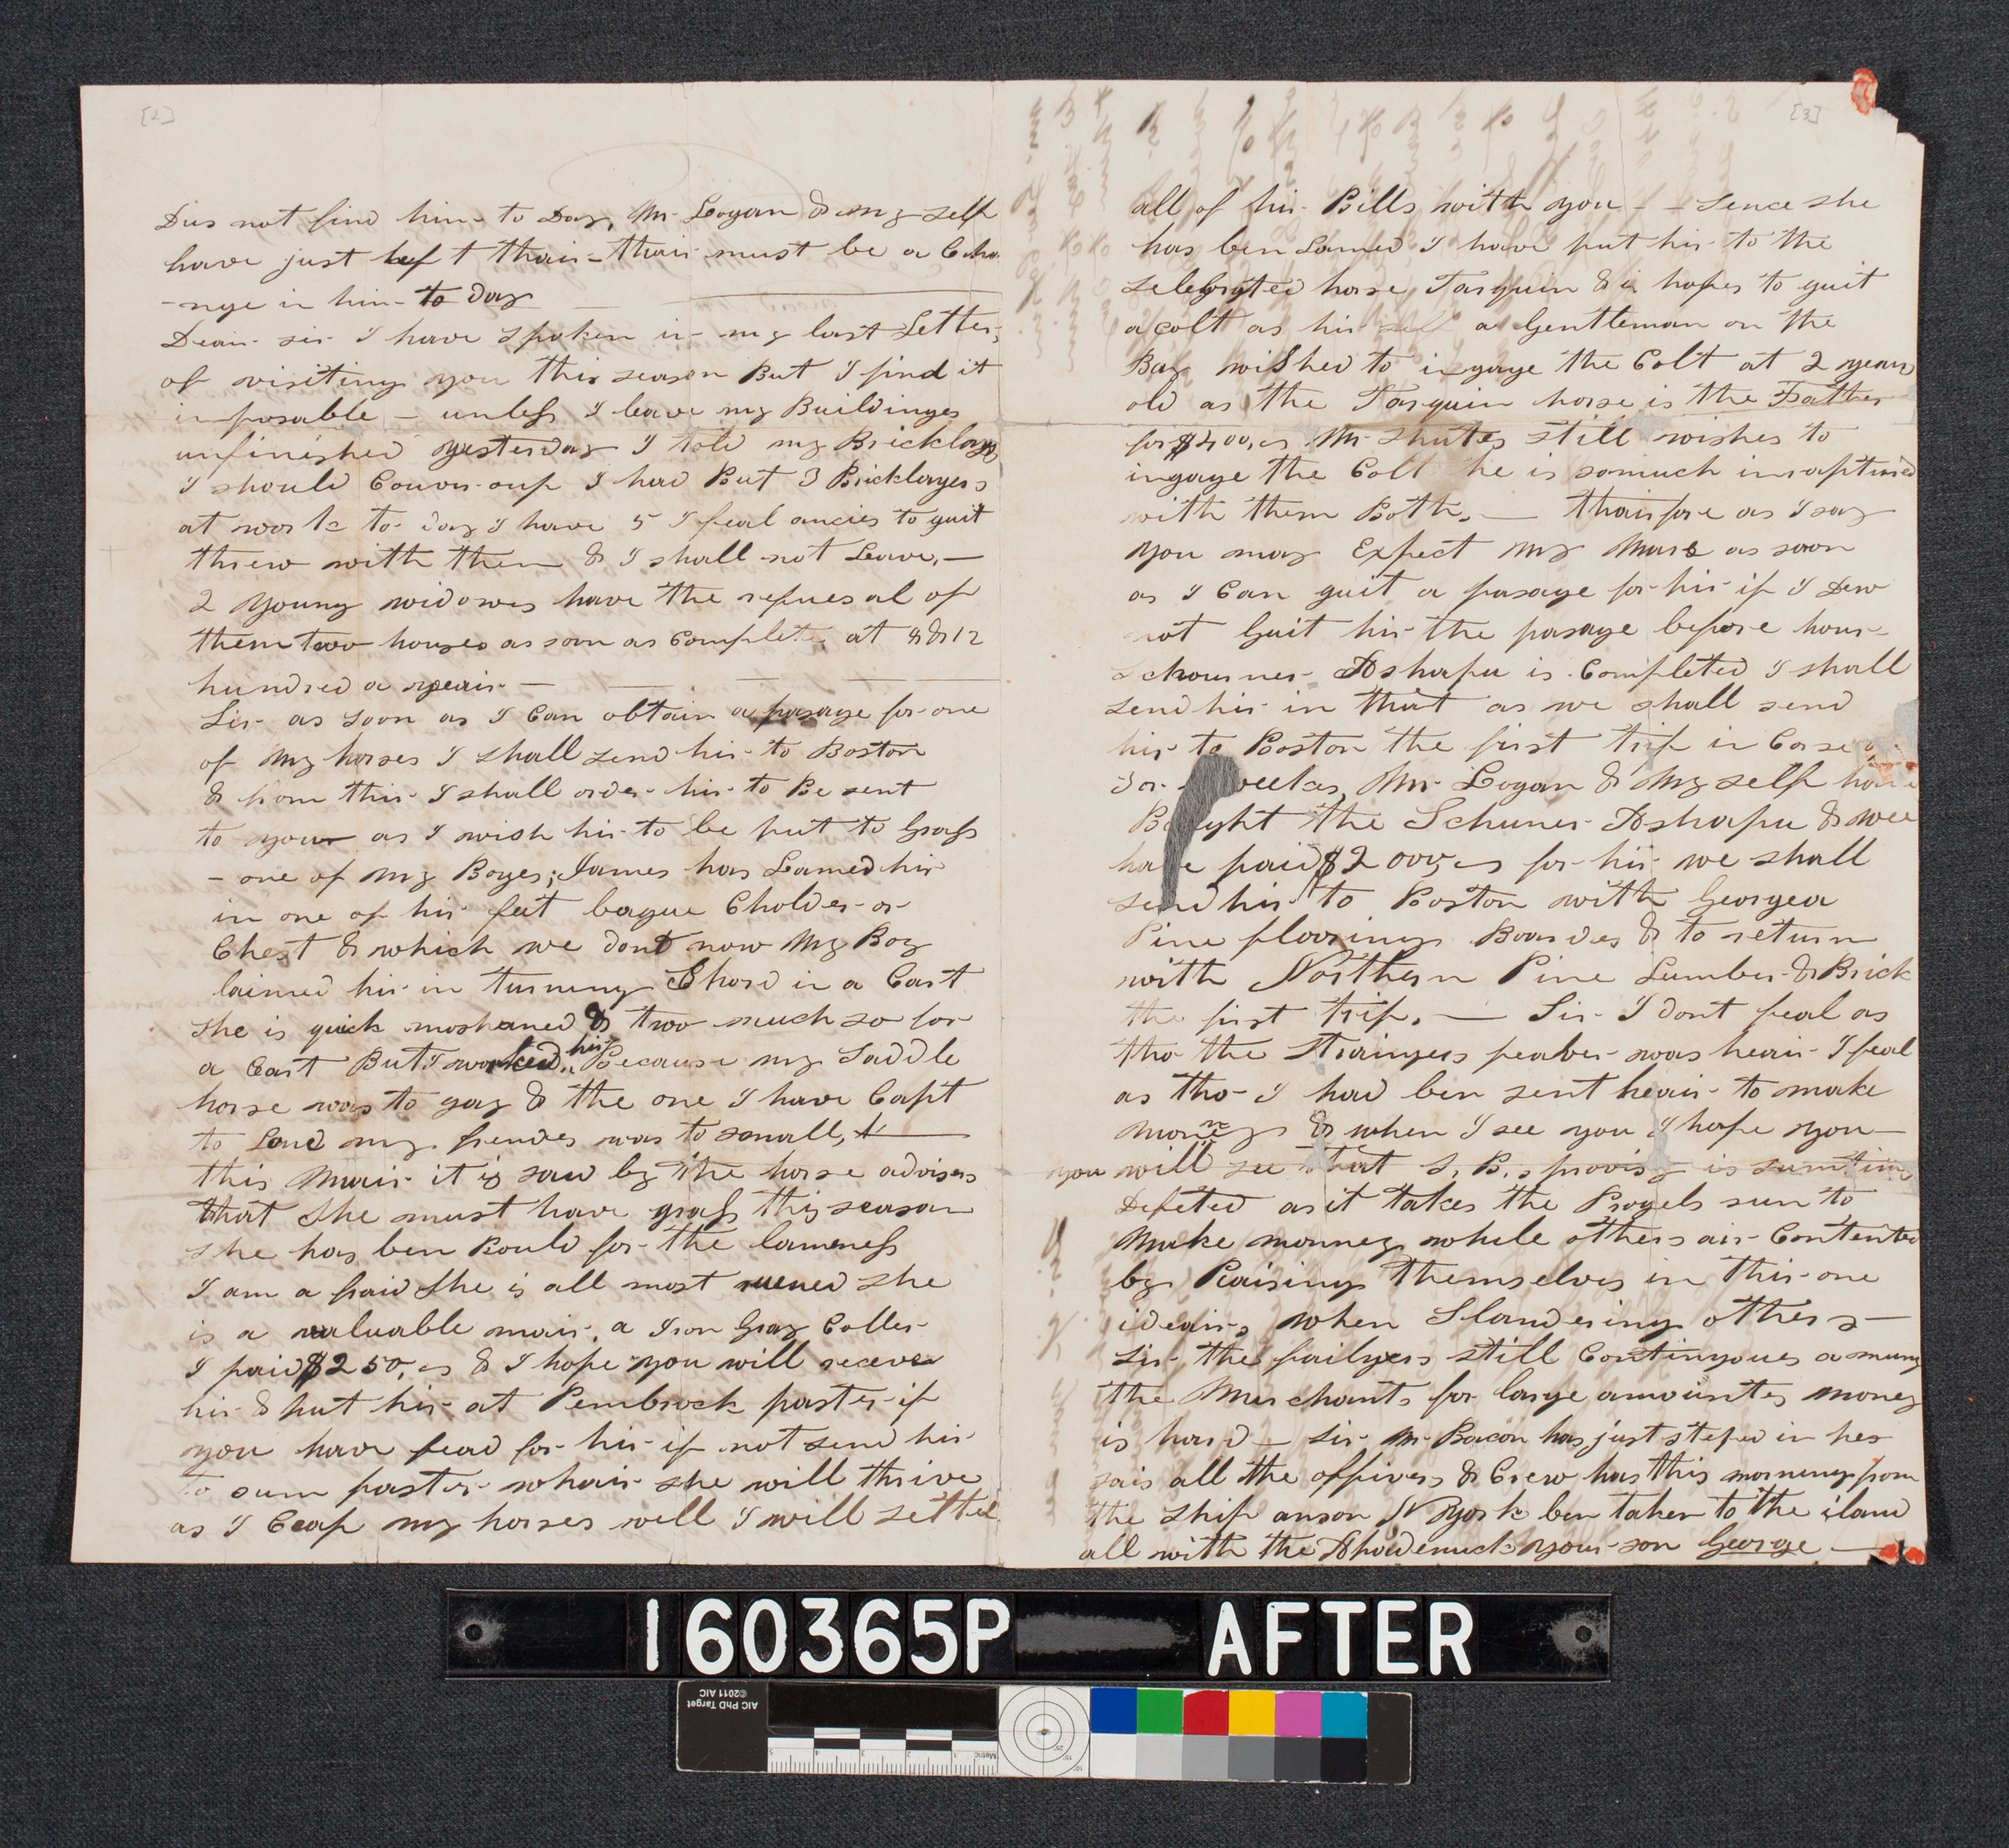 [2]
Dus not find him to Day, Mr Logan & my self
have just left thair - thair must be a Cha
-nge in him to day
Dear sir I have spoken in my last Letter,
of visiting you this season But I find it
imposable - unless I leave my Buildinges
unfinished yesterday I told my Bricklays
I should I had But 3 Bricklayers
at work to day I have 5 I feal ancies to guit
threw with them & I shall not Leave, -
2 young widowes have the refuesal of
them two houses as soon as Complete, at 8 & 12
hundred a year -
Sir as soon as I Can obtain a pasage for one
of my horses I shall send hir to Boston
& from this I shall order hir to Be sent
to your as I wish hir to be put to Grass
- one of my Boyes; James has Lamed hir
in one of hir feet Cholder or
Chest & which we dont now My Boy
laimed hir in turning Short in a Cart
she is quick moshened & two much so for
a Cart But I worked hir Because my Saddle
horse was to gay & the one I have Capt
to Lend my frendes was to small,
this Mair it is saw by the horse advisers
that she must have grass this season
she has ben Bould for the lameness
I am a fraid she is all most ruened she
is a valuable mair, a Iron Gray Coller
I paid $250, & I hope you will receve
hir & put hir at Pembrock paster if
you have fead for hir if not send hir
to sum paster whair she will thrive
as I Ceap my horses well I will settel
[3]
all of hir Bills with you - - Sence she
has ben Lamed I have put hir to the
Selebrated horse Tarquin & in hopes to guit
a colt as hir self a Gentleman on the
Bay wished to ingage the Colt at 2 years
old as the Tarquin horse is the Father
for $400, Mr Shutes still wishes to
ingage the Colt he is somuch inraptured
with them Both, - thairfore as I say
you may Expect my Mare as soon
as I Can guit a pasage for hir if I Dew
not Guit hir the pasage before hour
Schouner Ashapu is Completed I shall
send hir in that as we shall send
hir to Boston the first trip in Corse
3 or weekes, Mr Logan & My self have
Bought the Schuner Ashapu & wee
have paid $2000, for hir we shall
send hir to Boston with Georgea
Pine flooring Boardes & to return
with Northern Pine Lumber & Brick
the first trip, - Sir I dont feal as
tho the Straingers feaber was hear I feal
as tho I had ben sent hear to make
money & when I see you I hope you
you will see that S, B, s provisy is sumtimes
Defeted as it takes the Progels sun to
Make monney while others air Contented
by Raising themselves in thir one
idears, when Slandering others -
Sir the failyers still Continyoues amung
the Merchants for large amountes money
is hard - Sir Mr Bacon has just steped in hes
sais all the officers & Crew has this morning from
the ship anson N York ben taken to the iland
all with the your son George -
160365P AFTER
AIC PhD Target
©2011 AIC
Metric 1 2 3 4 5